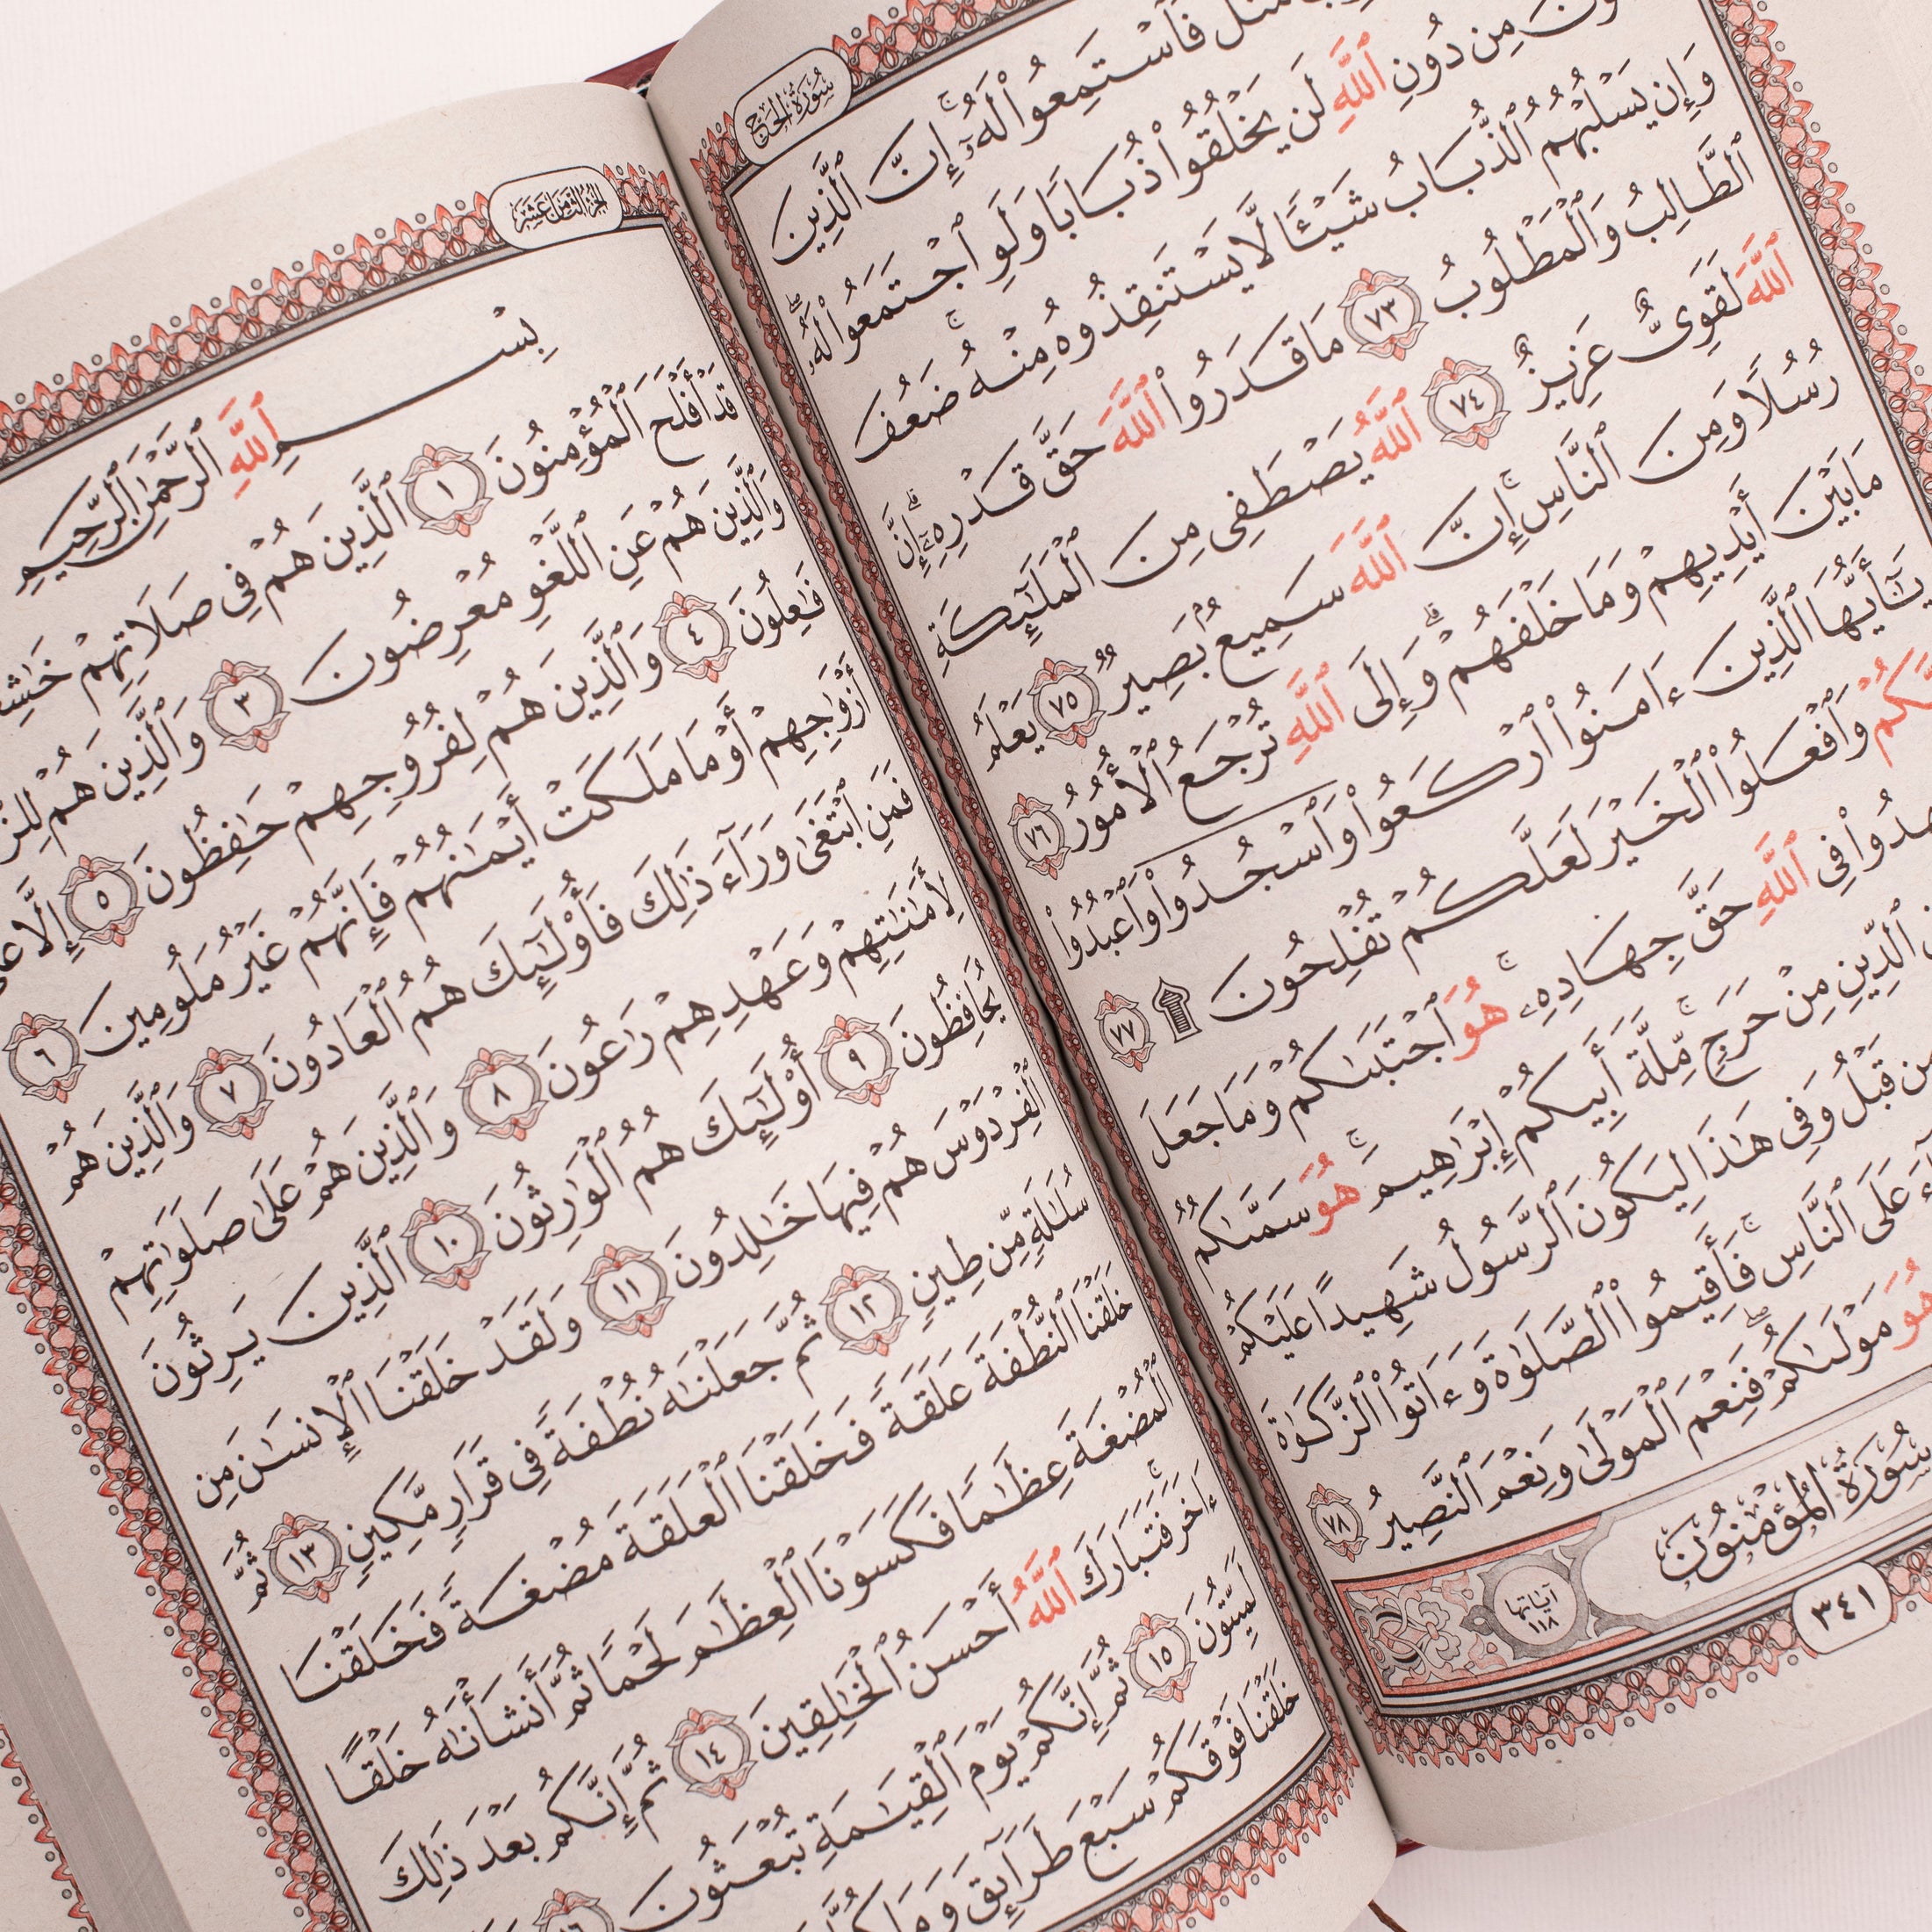 سُورَةُ الحَجِّ
مَثَلٌ فَٱسْتَمِعُوا۟ لَهُۥٓ ۚ إِنَّ ٱلَّذِينَ
مِن دُونِ ٱللَّهِ لَن يَخْلُقُوا۟ ذُبَابًا وَلَوِ ٱجْتَمَعُوا۟ لَهُۥ ۖ
وَإِن يَسْلُبْهُمُ ٱلذُّبَابُ شَيْـًٔا لَّا يَسْتَنقِذُوهُ مِنْهُ ۚ ضَعُفَ
ٱلطَّالِبُ وَٱلْمَطْلُوبُ ٧٣ مَا قَدَرُوا۟ ٱللَّهَ حَقَّ قَدْرِهِۦٓ ۗ إِنَّ
ٱللَّهَ لَقَوِىٌّ عَزِيزٌ ٧٤ ٱللَّهُ يَصْطَفِى مِنَ ٱلْمَلَـٰٓئِكَةِ
رُسُلًا وَمِنَ ٱلنَّاسِ ۚ إِنَّ ٱللَّهَ سَمِيعٌۢ بَصِيرٌ ٧٥ يَعْلَمُ
مَا بَيْنَ أَيْدِيهِمْ وَمَا خَلْفَهُمْ ۗ وَإِلَى ٱللَّهِ تُرْجَعُ ٱلْأُمُورُ ٧٦
يَـٰٓأَيُّهَا ٱلَّذِينَ ءَامَنُوا۟ ٱرْكَعُوا۟ وَٱسْجُدُوا۟ وَٱعْبُدُوا۟
وَٱفْعَلُوا۟ ٱلْخَيْرَ لَعَلَّكُمْ تُفْلِحُونَ ۩ ٧٧
فِى ٱللَّهِ حَقَّ جِهَادِهِۦ ۚ هُوَ ٱجْتَبَىٰكُمْ وَمَا جَعَلَ
ٱلدِّينِ مِنْ حَرَجٍ ۚ مِّلَّةَ أَبِيكُمْ إِبْرَٰهِيمَ ۚ هُوَ سَمَّىٰكُمُ
مِن قَبْلُ وَفِى هَـٰذَا لِيَكُونَ ٱلرَّسُولُ شَهِيدًا عَلَيْكُمْ
عَلَى ٱلنَّاسِ ۚ فَأَقِيمُوا۟ ٱلصَّلَوٰةَ وَءَاتُوا۟ ٱلزَّكَوٰةَ
هُوَ مَوْلَىٰكُمْ ۖ فَنِعْمَ ٱلْمَوْلَىٰ وَنِعْمَ ٱلنَّصِيرُ ٧٨
سُورَةُ المُؤْمِنُونَ
آياتها
١١٨
٣٤١
الجُزْءُ الثَّامِنَ عَشَرَ
بِسْمِ ٱللَّهِ ٱلرَّحْمَـٰنِ ٱلرَّحِيمِ
قَدْ أَفْلَحَ ٱلْمُؤْمِنُونَ ١ ٱلَّذِينَ هُمْ فِى صَلَاتِهِمْ
وَٱلَّذِينَ هُمْ عَنِ ٱللَّغْوِ مُعْرِضُونَ ٣ وَٱلَّذِينَ هُمْ
فَـٰعِلُونَ ٤ وَٱلَّذِينَ هُمْ لِفُرُوجِهِمْ حَـٰفِظُونَ ٥ إِلَّا
أَزْوَٰجِهِمْ أَوْ مَا مَلَكَتْ أَيْمَـٰنُهُمْ فَإِنَّهُمْ غَيْرُ مَلُومِينَ ٦
فَمَنِ ٱبْتَغَىٰ وَرَآءَ ذَٰلِكَ فَأُو۟لَـٰٓئِكَ هُمُ ٱلْعَادُونَ ٧ وَٱلَّذِينَ هُمْ
لِأَمَـٰنَـٰتِهِمْ وَعَهْدِهِمْ رَٰعُونَ ٨ وَٱلَّذِينَ هُمْ عَلَىٰ صَلَوَٰتِهِمْ
يُحَافِظُونَ ٩ أُو۟لَـٰٓئِكَ هُمُ ٱلْوَٰرِثُونَ ١٠ ٱلَّذِينَ يَرِثُونَ
ٱلْفِرْدَوْسَ هُمْ فِيهَا خَـٰلِدُونَ ١١ وَلَقَدْ خَلَقْنَا ٱلْإِنسَـٰنَ مِن
سُلَـٰلَةٍ مِّن طِينٍ ١٢ ثُمَّ جَعَلْنَـٰهُ نُطْفَةً فِى قَرَارٍ مَّكِينٍ ١٣ ثُمَّ
خَلَقْنَا ٱلنُّطْفَةَ عَلَقَةً فَخَلَقْنَا ٱلْعَلَقَةَ مُضْغَةً فَخَلَقْنَا
ٱلْمُضْغَةَ عِظَـٰمًا فَكَسَوْنَا ٱلْعِظَـٰمَ لَحْمًا ثُمَّ أَنشَأْنَـٰهُ خَلْقًا
ءَاخَرَ ۚ فَتَبَارَكَ ٱللَّهُ أَحْسَنُ ٱلْخَـٰلِقِينَ ١٤ ثُمَّ إِنَّكُم بَعْدَ ذَٰلِكَ
لَمَيِّتُونَ ١٥ ثُمَّ إِنَّكُمْ يَوْمَ ٱلْقِيَـٰمَةِ تُبْعَثُونَ ١٦
خَلَقْنَا فَوْقَكُمْ سَبْعَ طَرَآئِقَ وَمَا